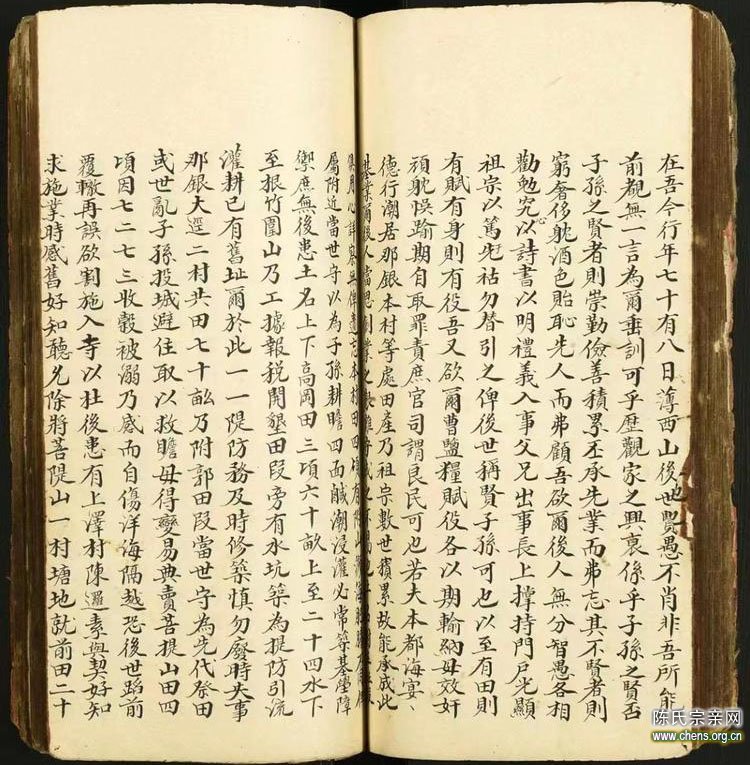 在吾今行年七十有八日薄西山後世賢愚不肖非吾所能
地
前覩無一言為爾垂訓可乎歷觀家之興衰係乎子孫之賢否
子孫之賢者則崇勤儉善積累丕承先業而弗忘其不賢者則
窮奢侈躭酒色貽恥先人而弗顧吾欲爾後人無分智愚各相
勸勉究心以詩書以明禮義入事父兄出事長上撐持門户光顯
祖宗以篤先祜勿替引之俾後世稱賢子孫可也以至有田則
有賦有身則有役吾又欲爾曹盬糧賦役各以期輸納毋效奸
頑躭悞踰期自取罪責庶官司謂良民可也若夫本都海宴
德行潮居那銀本村等處田產乃祖宗數世積累故能承成此
基業爾後人當思創業之
屬附近當世守以為子孫耕贍四面鹹潮浸灌必常築基壆障
禦庶無後患土名上下高岡田三頃六十畝上至二十四水下
至根竹圍山乃工據報税開墾田段旁有水坑築為提防引流
灌耕已有舊址爾於此一一隄防務及時修築慎勿廢時失事
那銀大逕二村共田七十畝乃附郭田段當世守為先代祭田
或世亂子孫投城避住取以救贍毋得變易典賣菩提山田四
頃因七二七三收穀被溺乃感而自傷洋海隔越恐後世蹈前
覆轍再誤欲割施入寺以杜後患有上澤村陳邏素與契好知
求施業時感舊好知聽兄除將菩隄山一村塘地就前田二十
陈氏宗亲网
www.chens.org.cn